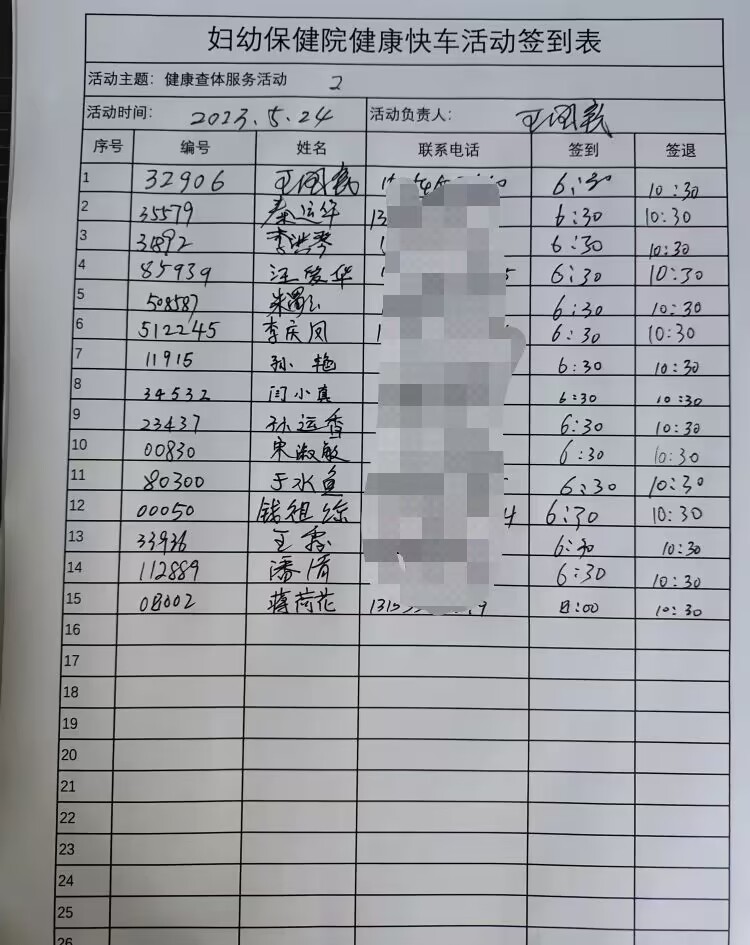 妇幼保健院健康快车活动签到表
活动主题：健康查体服务活动 2
活动时间：2023.5.24 活动负责人：
序号 编号 姓名 联系电话 签到 签退
1 32906 6:30 10:30
2 35579 秦运华 13 6:30 10:30
3 31892 李洪琴 6:30 10:30
4 85939 汪爱华 6:30 10:30
5 508587 6:30 10:30
6 512245 李庆凤 6:30 10:30
7 11915 孙艳 6:30 10:30
8 34532 闫小真 6:30 10:30
9 23437 孙运香 6:30 10:30
10 00830 宋淑敏 6:30 10:30
11 80300 于水鱼 6:30 10:30
12 00050 4 6:30 10:30
13 33936 王 6:30 10:30
14 112889 潘倩 6:30 10:30
15 蒋荷花 10:30
16
17
18
19
20
21
22
23
24
25
26